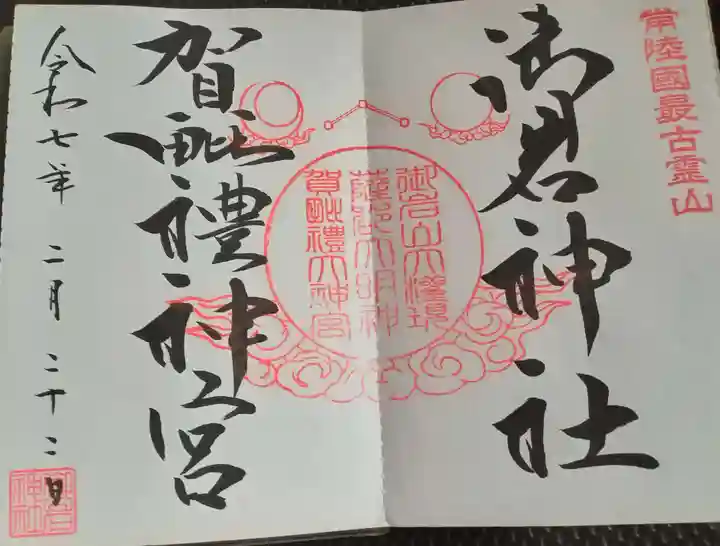 常陸國最古霊山
御岩神社
御岩山大権現
薩都大明神
賀毗禮大神宮
賀毗禮神宮
令和七年 二月 二十二日
御岩
神社